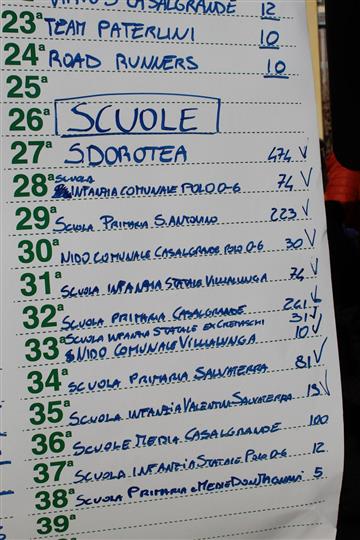 VIRTUS CASALGRANDE 12
23ª TEAM PATERLINI 10
24ª ROAD RUNNERS 10
25ª
26ª SCUOLE
27ª S DOROTEA 474 √
28ª SCUOLA INFANZIA COMUNALE POLO 0-6 74 √
29ª SCUOLA PRIMARIA S. ANTONINO 223 √
30ª NIDO COMUNALE CASALGRANDE POLO 0-6 30 √
31ª SCUOLA INFANZIA STATALE VILLALUNGA 74 √
32ª SCUOLA PRIMARIA CASALGRANDE 261 √
SCUOLA INFANZIA STATALE EX CREMASCHI 31 √
33ª NIDO COMUNALE VILLALUNGA 10 √
34ª SCUOLA PRIMARIA SALVATERRA 81 √
35ª SCUOLA INFANZIA VALENTINI SALVATERRA 19 √
36ª SCUOLE MEDIA CASALGRANDE 100
37ª SCUOLA INFANZIA STATALE POLO 0-6 12
38ª SCUOLA PRIMARIA e MEDIE DON MAGNANI 5
39ª